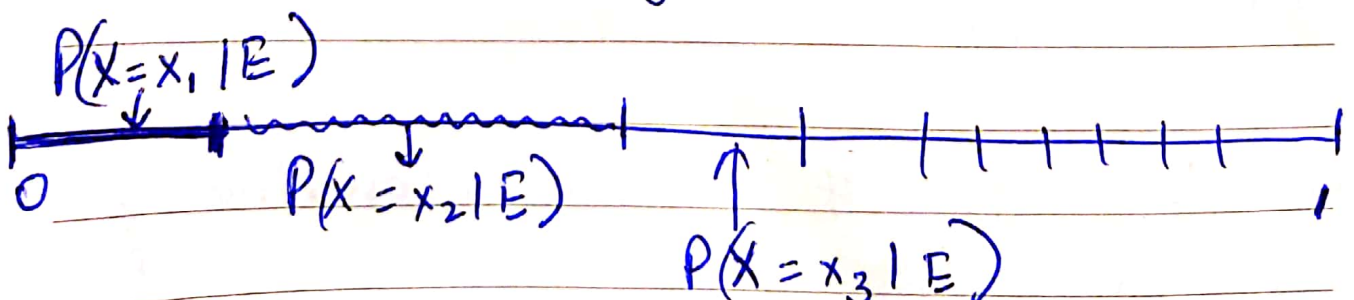 P(X=x₁|E)
0 P(X=x₂|E) 1
P(X=x₃|E)